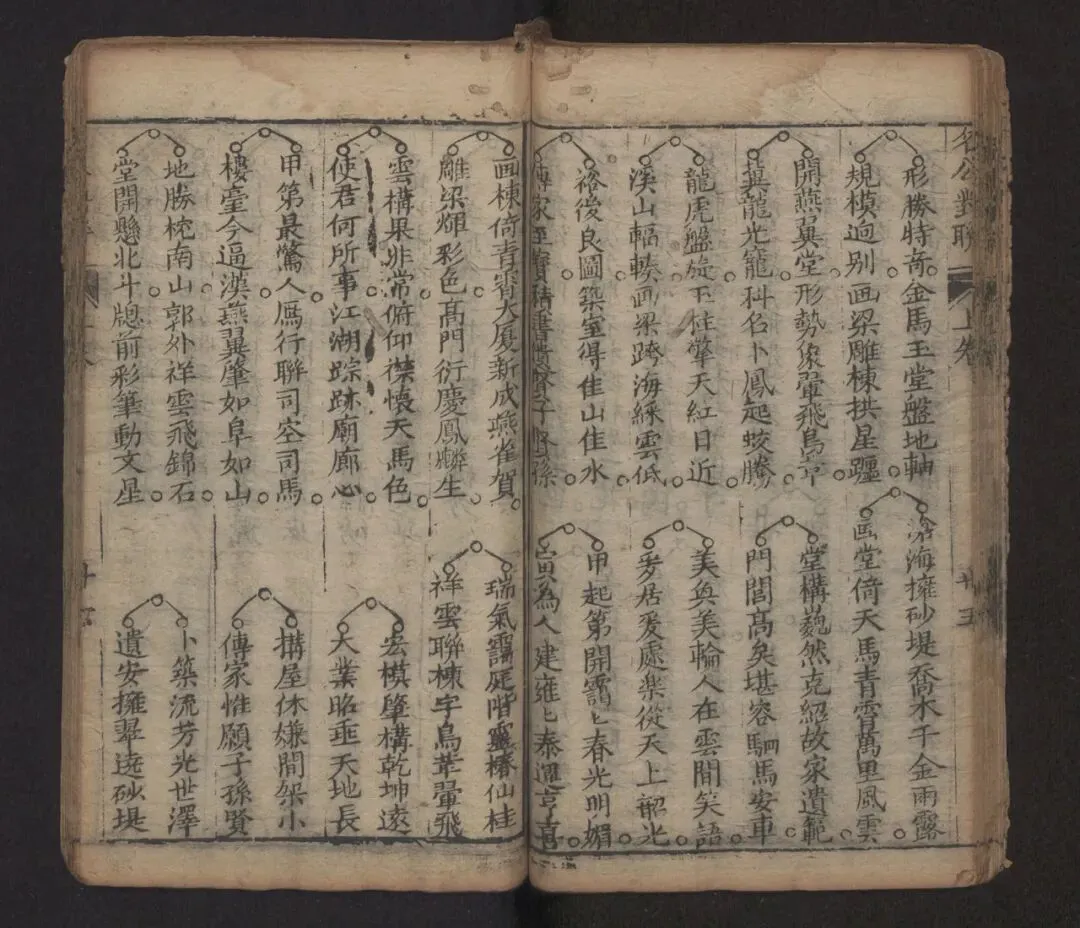 名公對聯
上卷
十五
形勝特奇金馬玉堂盤地軸
規模迥别画梁雕棟拱星躔
開燕翼堂形勢象翬飛鳥革
龍光寵科名卜鳳起蛟騰
龍虎盤旋玉柱擎天紅日近
溪山輻輳画梁跨海綵雲低
裕後良圖築室得佳山佳水
傳家至寶積書賢子賢孫
滄海擁砂堤喬木千金雨露
画堂倚天馬青霄萬里風雲
堂構巍然克紹故家遺範
門閭高矣堪容駟馬安車
美奐美輪人在雲間笑語
爰居爰處楽從天上韶光
甲起第開靄匕春光明媚
寅為人建雍匕泰運亨嘉
画棟倚青霄大厦新成燕雀賀
雕梁輝彩色高門衍慶鳳麟生
雲構果非常俯仰襟懷天馬色
使君何所事江湖踪跡廟廊心
甲第最驚人鴈行聯司空司馬
樓臺今逼漢燕翼肇如阜如山
地勝枕南山郭外祥雲飛錦石
堂開懸北斗牕前彩筆動文星
瑞氣靄庭階靈椿仙桂
祥雲聯棟宇鳥革翬飛
宏模肇構乾坤遠
大業昭垂天地長
搆屋休嫌間架小
傳家惟願子孫賢
卜築流芳光世澤
遺安擁翠遶砂堤